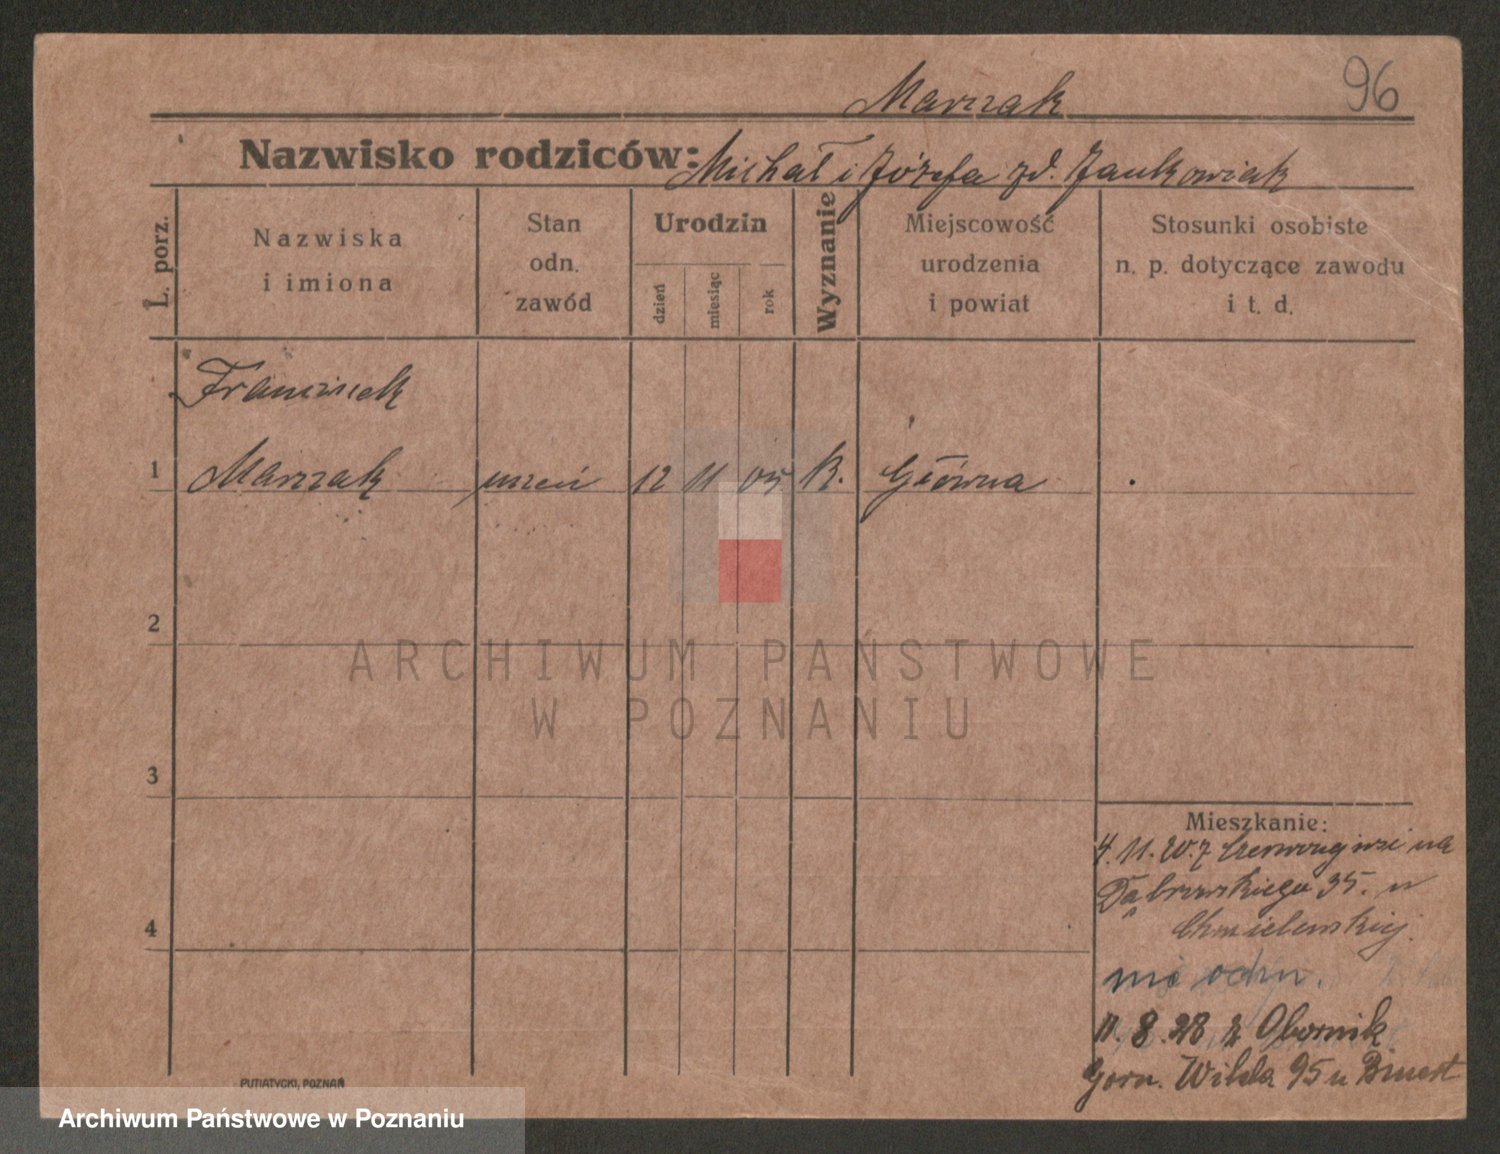 96
Marszak
Nazwisko rodziców: Michał i Józefa zd. Jankowiak
L. porz.
Nazwiska
i imiona
Stan
odn.
zawód
Urodzin
dzień
miesiąc
rok
Wyznanie
Miejscowość
urodzenia
i powiat
Stosunki osobiste
n. p. dotyczące zawodu
i t. d.
Franciszek
1 Marszak uczeń 12 11 05 K. Główna
2
ARCHIWUM PAŃSTWOWE
W POZNANIU
3
Mieszkanie:
4. 11. 20. z na
Dąbrowskiego 35. u
Chmielewskiej.
4
nie odm.
11. 8. 28 z Obornik
Górn. Wilda 95 u
PUTIATYCKI, POZNAŃ
Archiwum Państwowe w Poznaniu